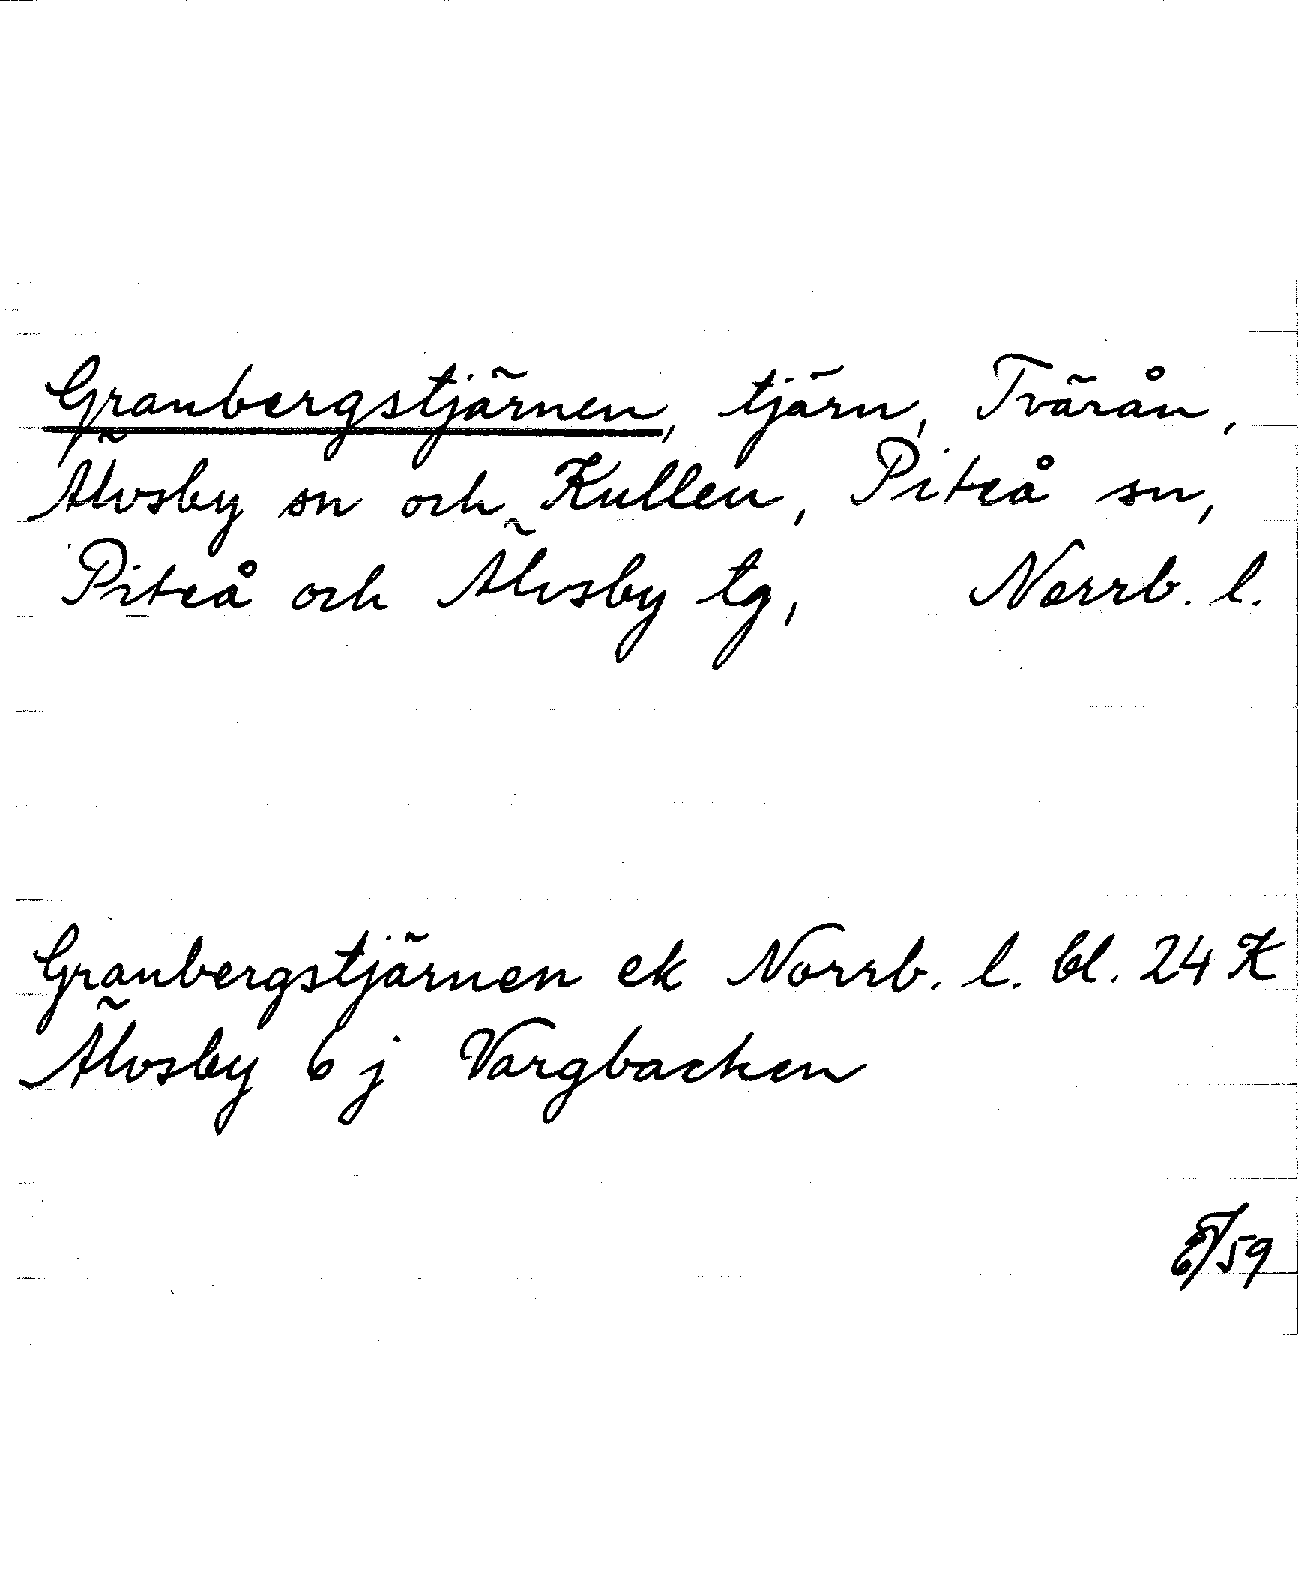 Granbergstjärnen, tjärn, Tvärån,
Älvsby sn och Kullen, Piteå sn,
Piteå och Älvsby tg, Norrb. l.
Granbergstjärnen ek Norrb. l. bl. 24 K
Älvsby 6 j Vargbacken
/59